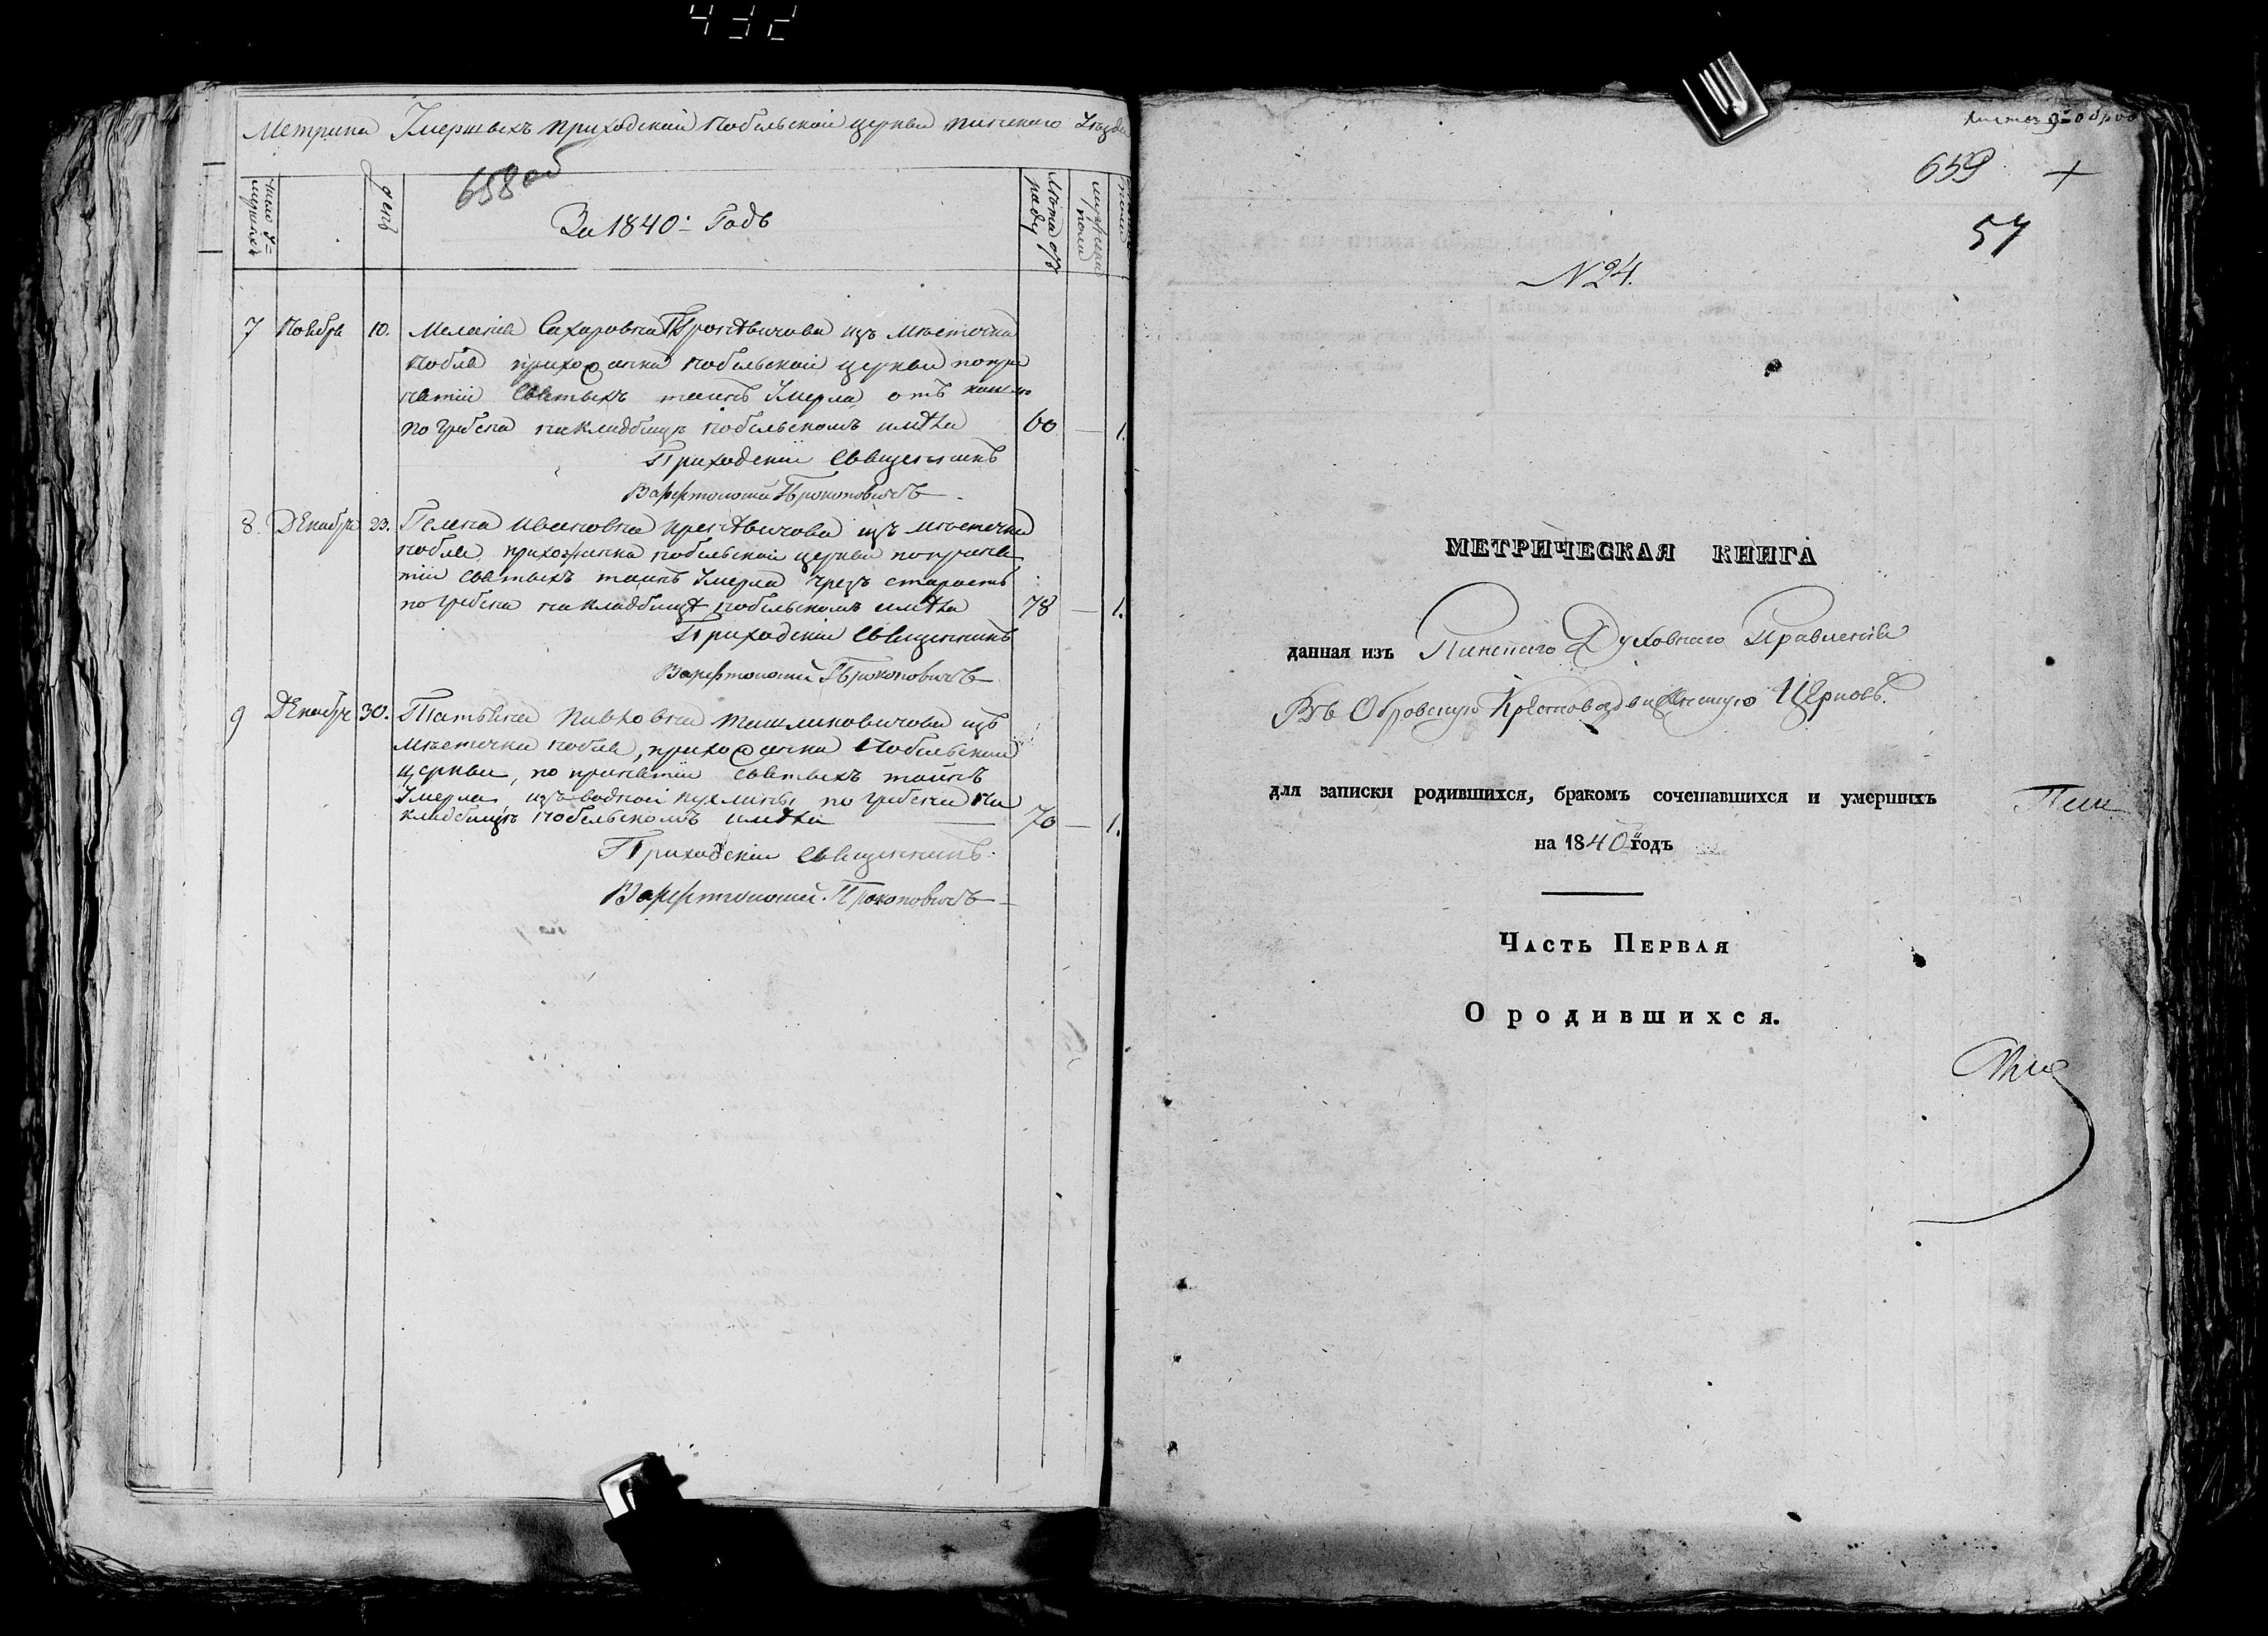 432
Метрика Умершихъ приходской Нобельской церкви пинского Уезда
658 об
число у=
мершихъ
день
За 1840: Годъ
Лѣта отъ
роду
мужеска
пола
7 Ноября 10. Меланія Сахаровна из мѣстечка
Нобля прихожанка Нобельской церкви попри
нятіи Святыхъ таинъ Умерла отъ кашлю
погребена на кладбищѣ нобельскомъ 60 — 1.
Приходскій Священникъ
Варфтоломей Прокоповичъ
8. Декабря 23. Гелена Ивановна изъ мѣстечка
нобля прихожанка нобельской церкви попринят
тіи святыхъ таинъ Умерла чрезъ старость
погребена на кладбищѣ нобельскомъ 78 — 1.
Приходскій Священникъ
Варфтоломей Прокоповичъ
9 Декабря 30. Татьяна Павловна изъ
мѣстечка нобля, прихожанка Нобельской
церкви, по принятіи святыхъ таинъ
Умерла, изъ водной пухлины погребена на
кладбищѣ нобельскомъ 70 — 1.
Приходскій Священникъ
Варфтоломей Прокоповичъ
659
57
N 24.
МЕТРИЧЕСКАЯ КНИГА
данная изъ Пинскаго Духовнаго Правленія
Въ Обровскую Крестовоздвиженскую Церковь.
для записки родившихся, бракомъ сочетавшихся и умершихъ
на 1840 годъ
ЧАСТЬ ПЕРВАЯ
О родившихся.